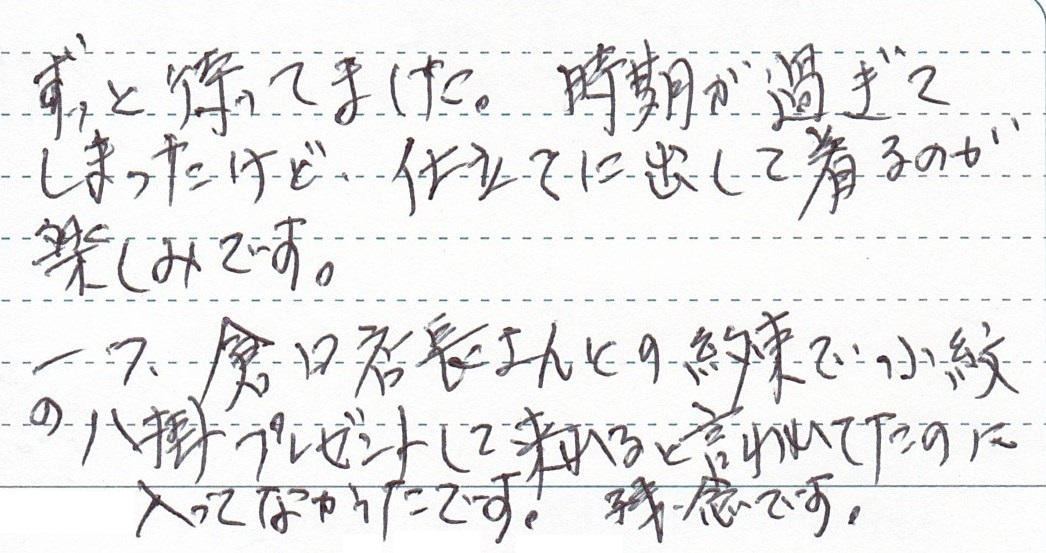 ずっと待ってました。 時期が過ぎて
しまったけど、仕立てに出して着るのが
楽しみです。
一つ、倉田店長さんとの約束で小紋
の八掛プレゼントして来れると言われてたのに
入ってなかったです。 残念です。